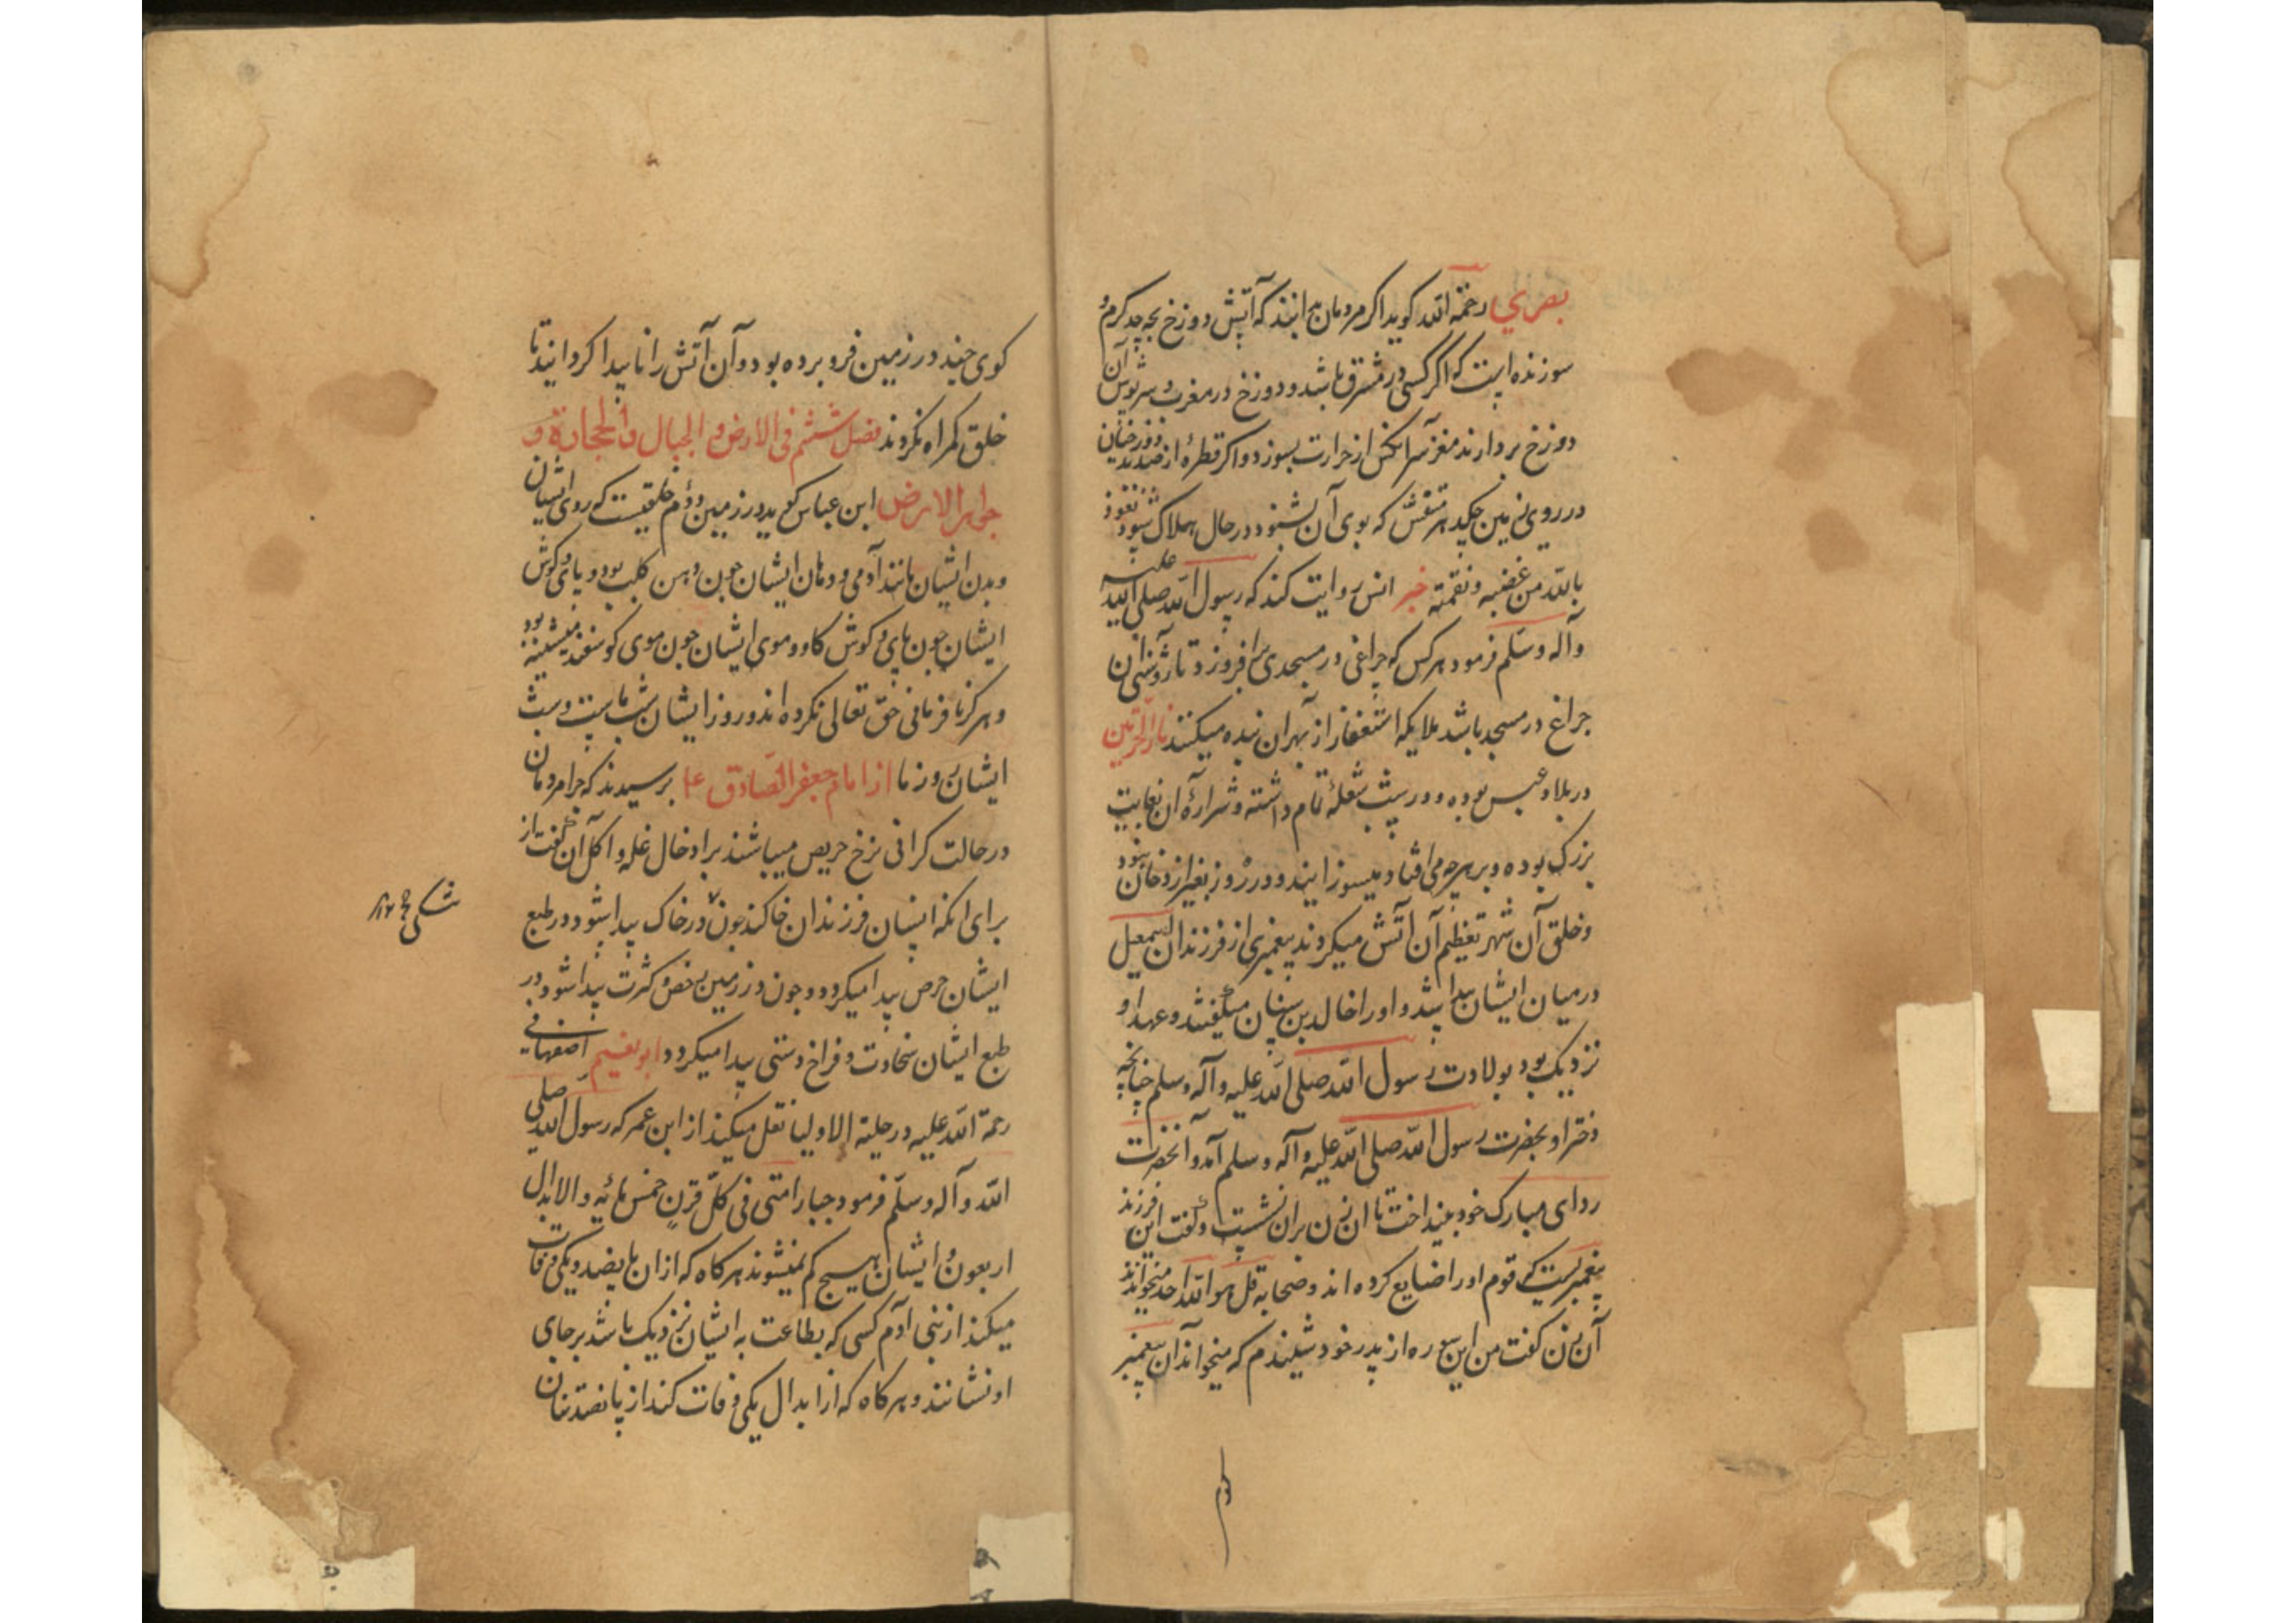 بصري رحمة الله کوید اکر مردمان بدانند که آتش دوزخ بچه حد کرم و
سوزنده است که اکر کسی در مشرق باشد و دوزخ در مغرب و سرپوش آن
دوزخ بردارند مغز سر آنکس از حرارت بسوزد و اکر قطرهٔ از صدید دوزخیان
در روی زمین چکد هر متنفس که بوی آن بشنود در حال هلاک شود نعوذ
بالله من غضبه و نقمته خبر انس روایت کند که رسول الله صلی الله علیه
وآله وسلم فرمود هر کس که چراغی در مسجدی برافروزد تا روشنی ان
چراغ در مسجد باشد ملایکه استغفار از بهر ان بنده میکنند نار الحرتین
در بلاد عبس بوده و در شب شعلهٔ تمام داشته و شرارهٔ ان بغایت
بزرک بوده و بر هر چه می افتاد میسوزانید و در روز بغیر از دخان نبود
وخلق آن شهر تعظیم آن آتش میکردند پیغمبری از فرزندان اسمعیل
درمیان ایشان پیدا شد و اورا خالد بن سنان میکفتند و عهد او
نزدیک بود بولادت رسول الله صلی الله علیه وآله وسلم چنانچه
دختر او بحضرت رسول الله صلی الله علیه وآله وسلم آمد و آنحضرت
ردای مبارک خود بینداخت تا ان زن بران نشست و کفت این فرزند
پیغمبریست که قوم اورا ضایع کرده اند و صحابه قل هو الله احد میخواندند
آن زن کفت من این سوره از پدر خود شنیدم که میخواند آن پیغمبر
کوی چند در زمین فرو برده بود و آن آتش را ناپیدا کردانید تا
خلق کمراه نکردند فصل ششم فی الارض و الجبال و الحجارة و
جواهر الارض ابن عباس کوید در زمین دوم خلقیست که روی ایشان
وبدن ایشان مانند آدمی و دهان ایشان چون دهن کلب بود و پای و کوش
ایشان چون پای و کوش کاو و موی ایشان چون موی کوسفند میشینه بود
وهرکز نافرمانی حق تعالی نکرده اند و روز ایشان شب ماست و شب
ایشان روز ما از امام جعفر الصادق ع پرسیدند که چرا مردمان
در حالت کرانی نرخ حریص میباشند بر ادخال غله و اکل آن کفت از
برای انکه انسان فرزندان خاکند چون در خاک پیدا شود در طبع
ایشان حرص پیدا میکردد و چون در زمین رخص و کثرت پیدا شود در
طبع ایشان سخاوت و فراخ دستی پیدا میکردد ابو نعیم اصفهانی
رحمة الله علیه در حلیة الاولیا نقل میکند از ابن عمر که رسول الله صلی
الله وآله وسلم فرمود خیار امتی فی کل قرن خمس مائیه والابدال
اربعون و ایشان هیچ کم نمیشوند هرکاه که ازان پانصد و یکی وفات
میکند از بنی آدم کسی که بطاعت به ایشان نزدیک باشد بر جای
او نشانند و هرکاه که از ابدال یکی وفات کند از پانصد تنان